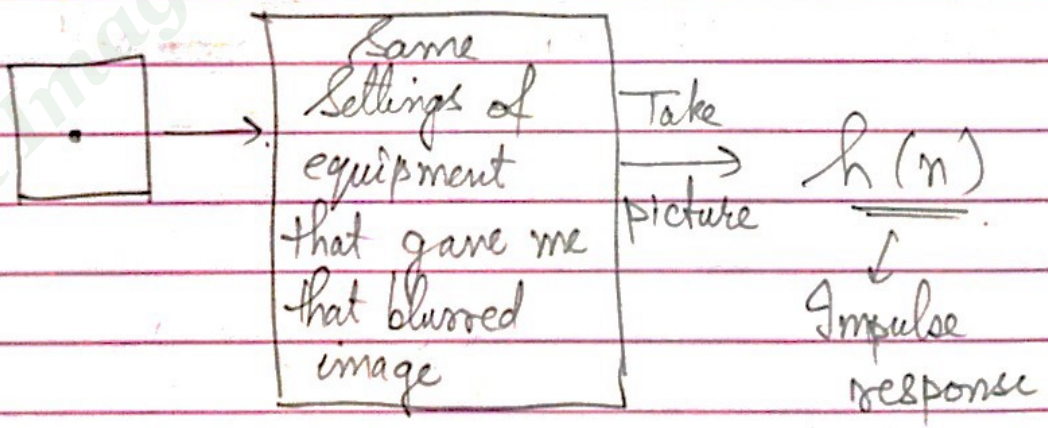 Same
Settings of
equipment
that gave me
that blurred
image
Take
picture
h(n)
Impulse
response